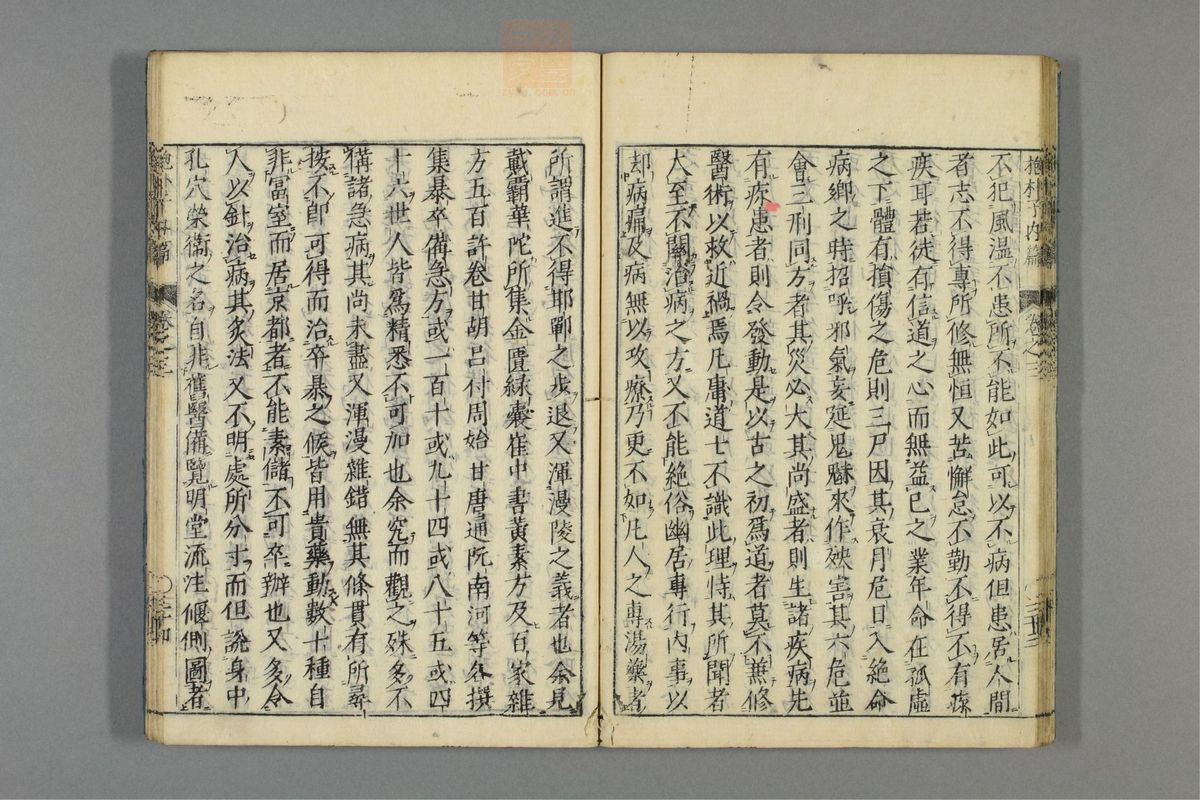 抱朴子内篇 卷之三 〇三十三
不犯風溫不患所不能如此可以不病但患居人間
者志不得專所修無恒又苦懈怠不勤不得不有疹
疾耳若徒有信道之心而無益已之業年命在孤虛
之下體有損傷之危則三尸因其衰月危日入絕命
病鄉之時招呼邪氣妄延鬼魅來作殃害其六危並
會三刑同方者其災必大其尚盛者則生諸疾病先
有疹患者則令發動是以古之初爲道者莫不兼修
醫術以救近禍焉凡庸道士不識此理恃其所聞者
大至不關治病之方又不能絕俗幽居專行內事以
却病痛及病無以攻療乃更不如凡人之專湯藥者
所謂進不得邯鄲之步退又渾漫陵之義者也余見
戴霸華陀所集金匱綠囊崔中書黃素方及百家雜
方五百許卷甘胡呂付周始甘唐通阮南河等各撰
集暴卒備急方或一百十或九十四或八十五或四
十六世人皆爲精悉不可加也余究而觀之殊多不
備諸急病其尚未盡又渾漫雜錯無其條貫有所尋
按不卽可得而治卒暴之候皆用貴藥動數十種自
非富室而居京都者不能素儲不可卒辦也又多令
人以針治病其灸法又不明處所分寸而但說身中
孔穴榮衞之名自非舊醫備覽明堂流注偃側圖者
抱朴子内篇 卷之三 〇三十四
zysj.com.cn